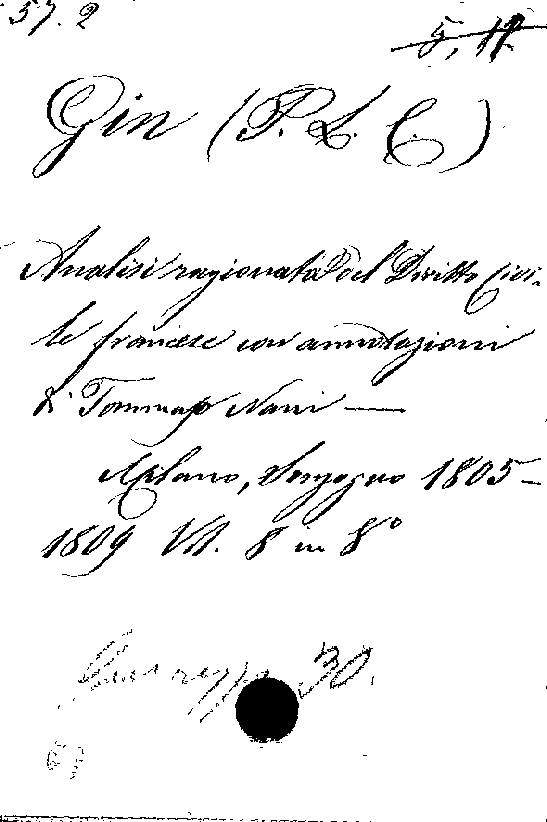 57. 2
5, 11
Gin (P. L. C.)
Analisi ragionata del Diritto Civi-
le francese con annotazioni
di Tommaso Nani —
Milano, Sonzogno 1805-
1809 Vol. 8 in 8°
30.